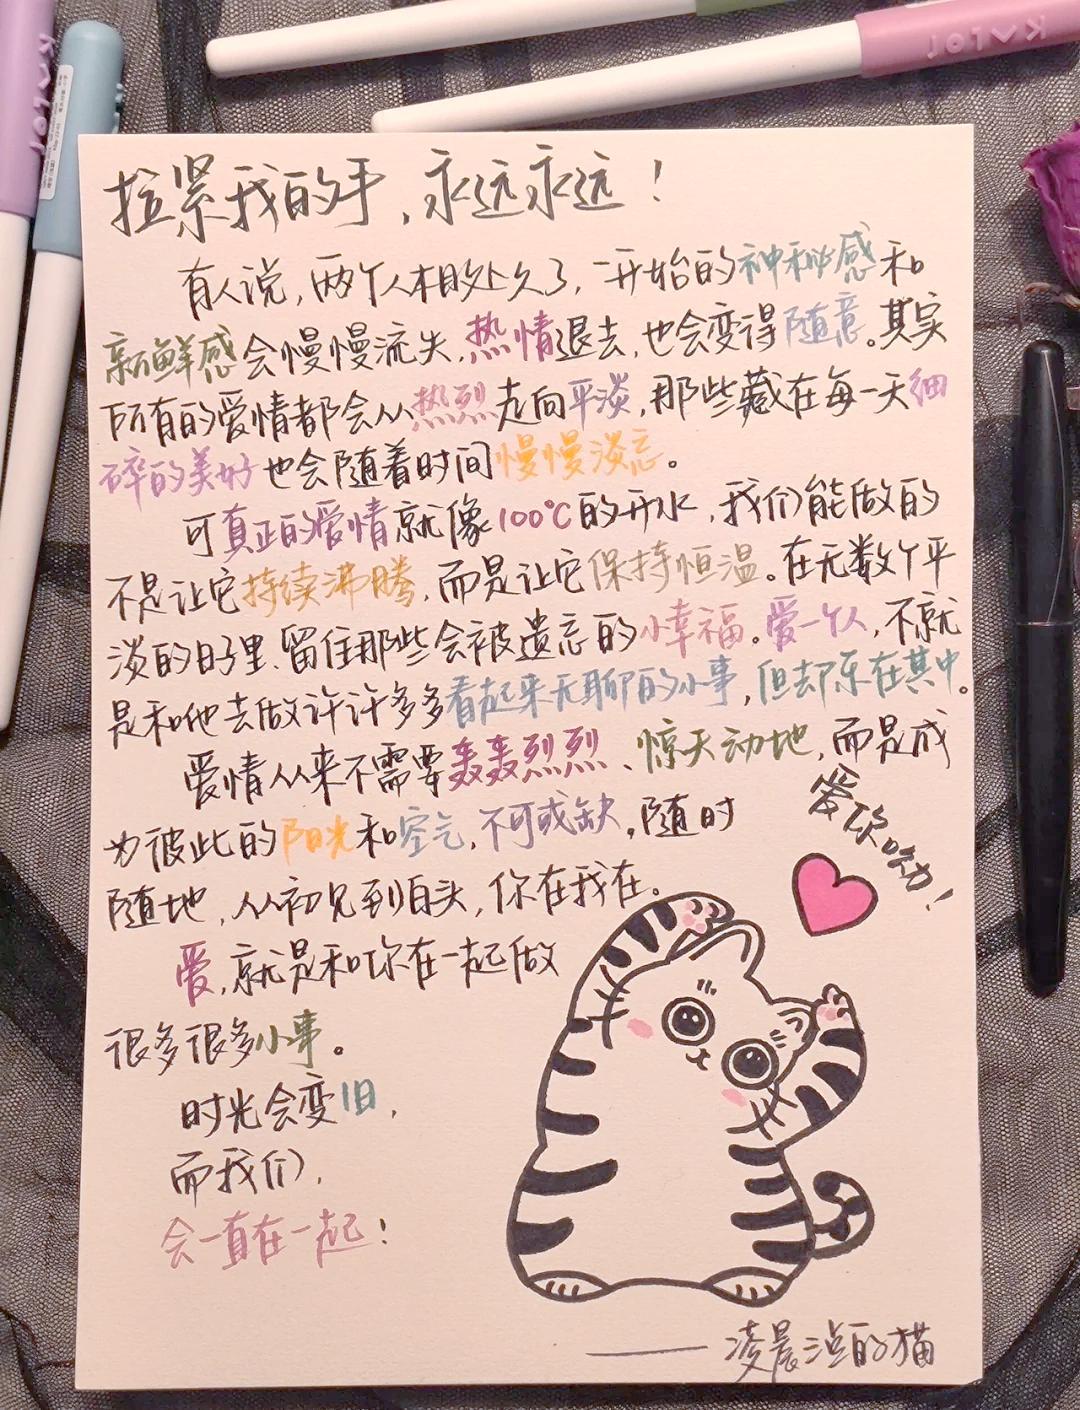 KALOR
KALOR
KALOR
拉紧我的手，永远永远！
有人说，两个人相处久了，一开始的神秘感和
新鲜感会慢慢流失，热情退去，也会变得随意。其实
所有的爱情都会从热烈走向平淡，那些藏在每一天细
碎的美好也会随着时间慢慢淡忘。
可真正的爱情就像100℃的开水，我们能做的
不是让它持续沸腾，而是让它保持恒温。在无数个平
淡的日子里、留住那些会被遗忘的小幸福。爱一个人，不就
是和他去做许许多多看起来无聊的小事，但却乐在其中。
爱情从来不需要轰轰烈烈、惊天动地，而是成
为彼此的阳光和空气，不可或缺。随时
随地，从初见到白头，你在我在。
爱你呦！
爱，就是和你在一起做
很多很多小事。
时光会变旧，
而我们，
会一直在一起！
——凌晨三点的猫